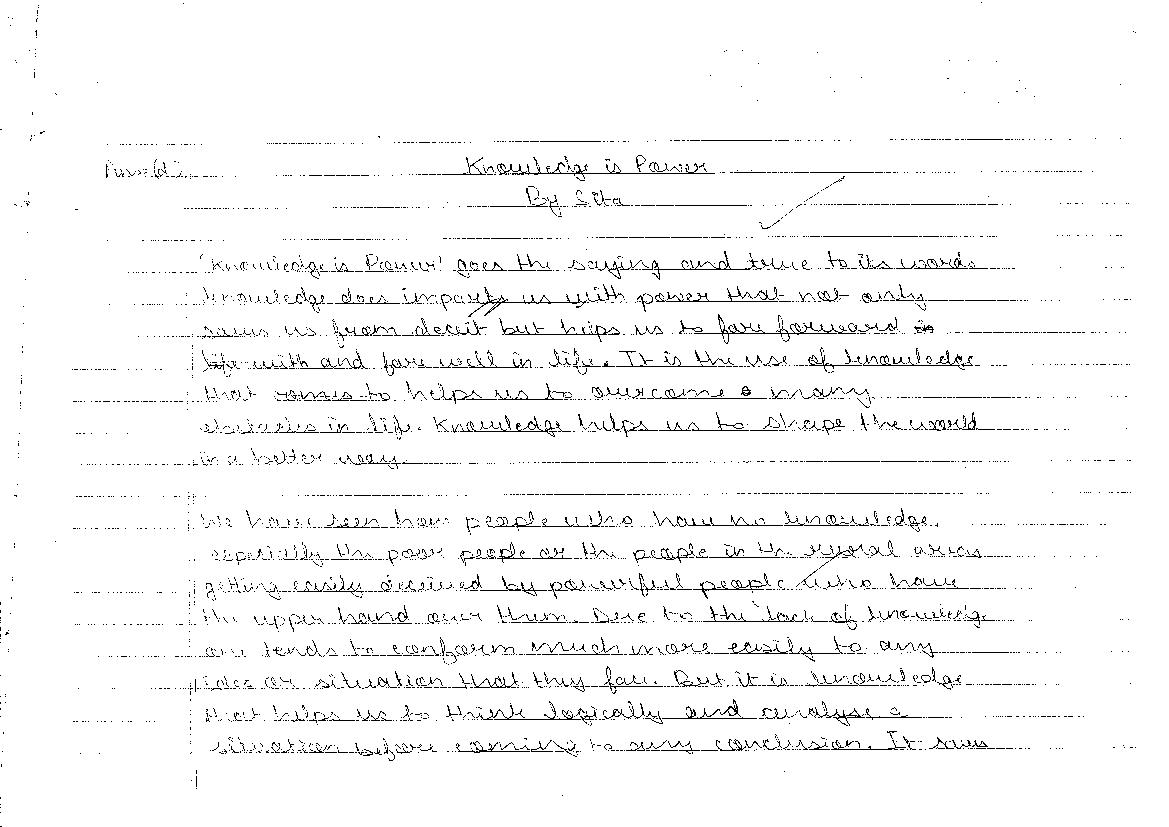 Knowledge is Power
By Sita
'Knowledge is Power' goes the saying and true to its words
knowledge does imparts us with power that not only
saves us from deceit but helps us to fare forward in
life with and fare well in life. It is the use of knowledge
that comes to helps us to overcome many
obstacles in life. Knowledge helps us to shape the world
in a better way.
We have seen how people who have no knowledge,
especially the poor people or the people in the rural areas
getting easily deceived by powerful people who have
the upper hand over them. Due to the lack of knowledge
one tends to conform much more easily to any
idea or situation that they face. But it is knowledge
that helps us to think logically and analyse a
situation before coming to any conclusion. It saves